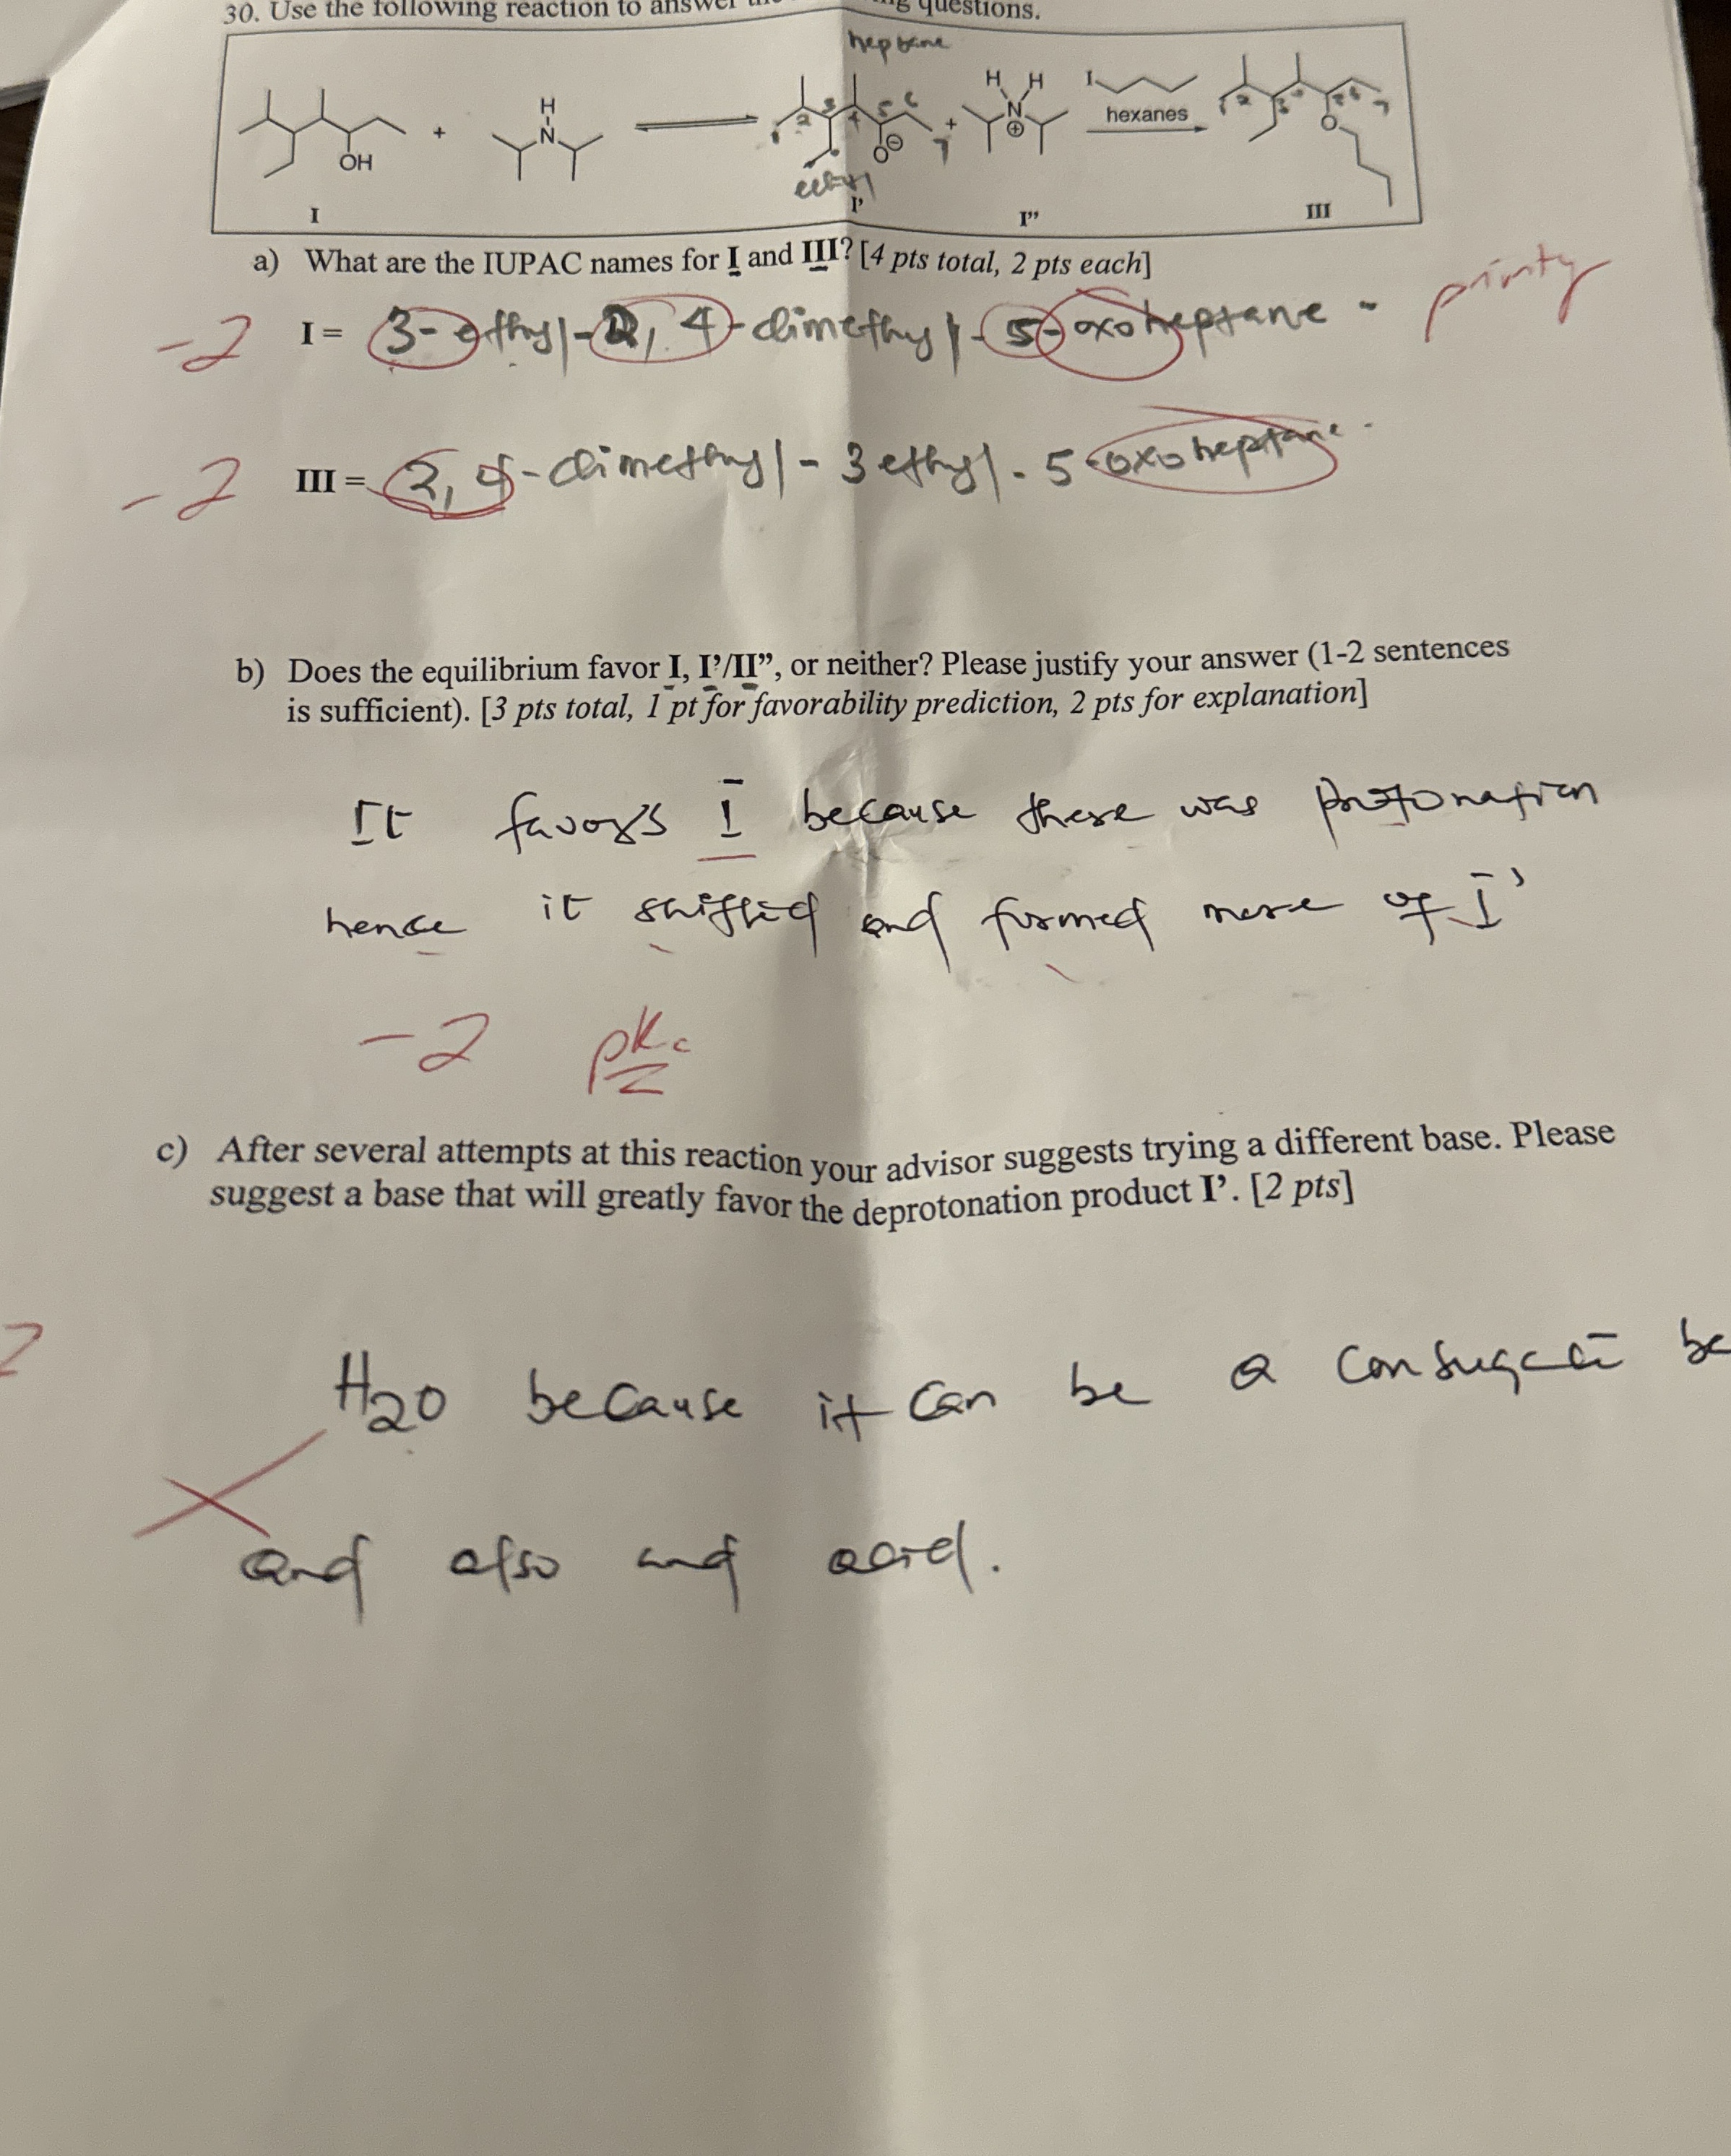 30. Use the following reaction to answer questions.
heptane
H
N
OH
+
I
1 2 3 4 5 6 7
O⊖
ethyl
I'
+
H H
N
⊕
I"
I
hexanes
2 3
O
III
a) What are the IUPAC names for I and III? [4 pts total, 2 pts each]
-2 I = 3-ethyl-2, 4-dimethyl-5-oxoheptane -
-2 III = 2, 4-dimethyl-3ethyl-5-oxoheptane.
b) Does the equilibrium favor I, I'/II", or neither? Please justify your answer (1-2 sentences
is sufficient). [3 pts total, 1 pt for favorability prediction, 2 pts for explanation]
It favors I because there was protonation
hence it shifted and formed more of I'
-2 pKa
c) After several attempts at this reaction your advisor suggests trying a different base. Please
suggest a base that will greatly favor the deprotonation product I'. [2 pts]
H2O because it can be a
and also and acid.